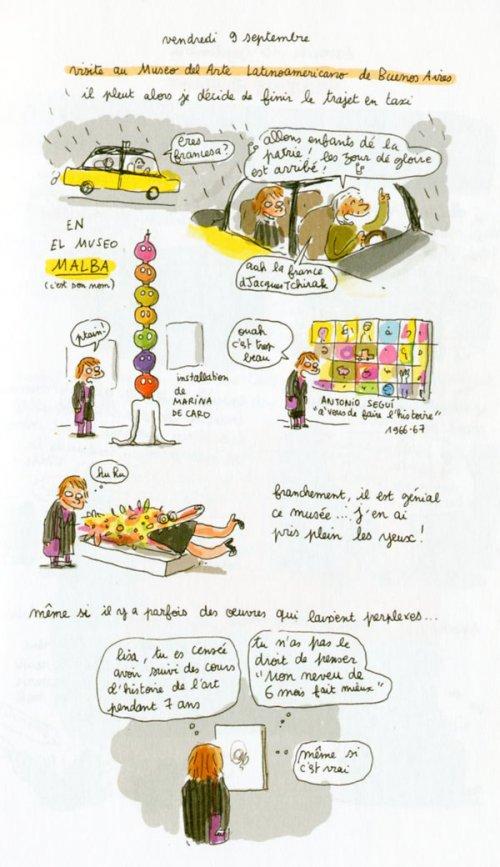 vendredi 9 septembre
visite au Museo del Arte Latinoamericano de Buenos Aires
il pleut alors je décide de finir le trajet en taxi
eres
francesa?
allons enfants dé la
patrie, les zour dé gloire
est arribé!
aah la france
dJacques Tchirak
EN
EL MUSEO
MALBA
(c'est son nom)
ptain!
installation
de
MARINA
DE CARO
ouah
c'est trop
beau
ANTONIO SEGUÍ
"à vous de faire l'histoire"
1966-67
hu hu
franchement, il est génial
ce musée... j'en ai
pris plein les yeux!
même si il y a parfois des œuvres qui laissent perplexes...
lisa, tu es censée
avoir suivi des cours
d'histoire de l'art
pendant 7 ans
tu n'as pas le
droit de penser
"Mon neveu de
6 mois fait mieux"
même si
c'est vrai